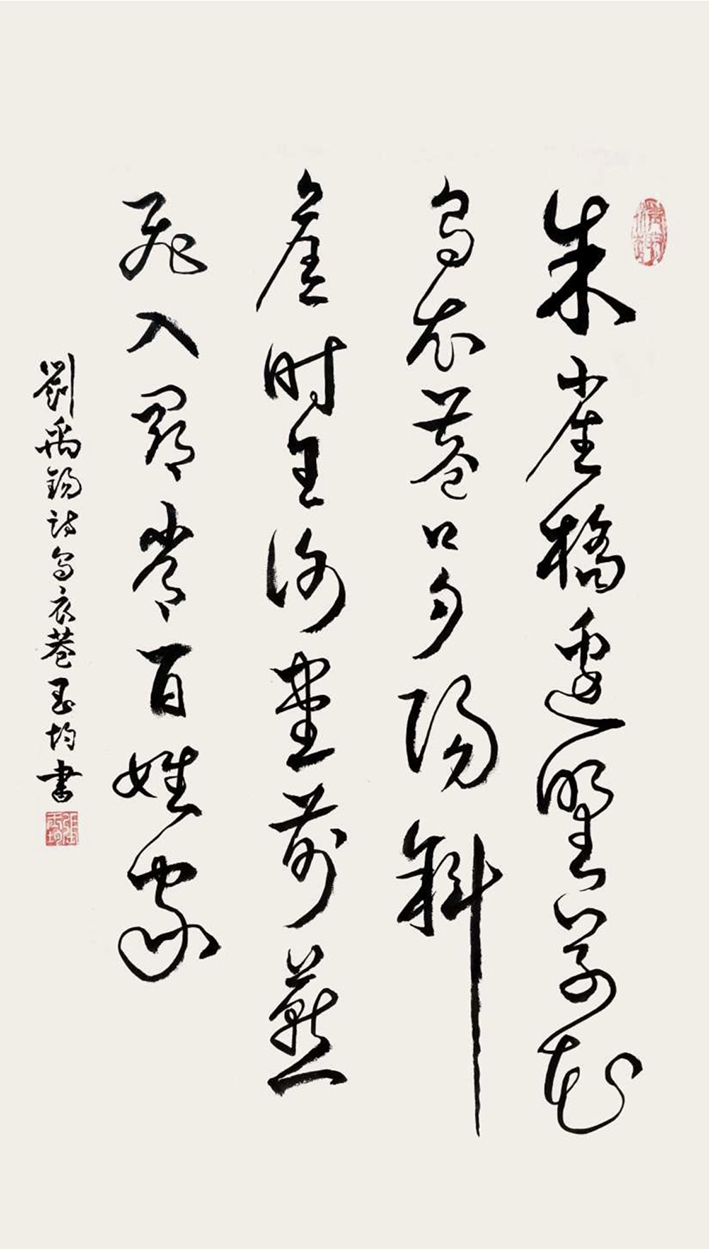 朱雀橋邊野草花
烏衣巷口夕陽斜
舊時王謝堂前燕
飛入尋常百姓家
劉禹錫詩烏衣巷玉均書